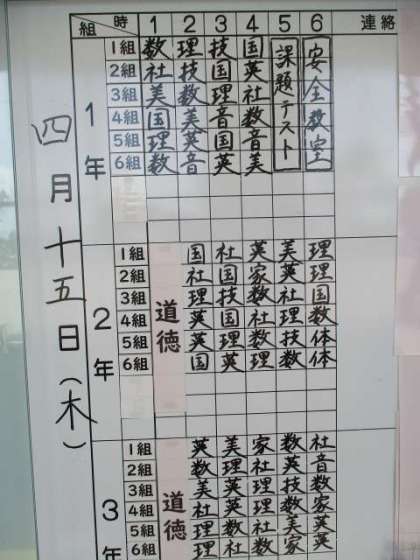 四月十五日(木)
組 時 1 2 3 4 5 6 連絡
1年
1組 数 理 技 国
2組 社 技 国 英
3組 美 数 理 社
4組 国 美 音 数
5組 理 英 国 音
6組 数 音 英 美
課題テスト
安全教室
2年
道徳
1組 国 社 英 美 理
2組 社 国 家 英 理
3組 理 技 数 社 国
4組 英 国 社 理 数
5組 英 理 数 技 体
6組 国 英 理 数 体
3年
道徳
1組 英 美 家 数 社
2組 数 理 社 英 音
3組 美 英 理 技 数
4組 社 英 理 数 家
5組 理 数 社 美 英
6組 理 社 数 家 英